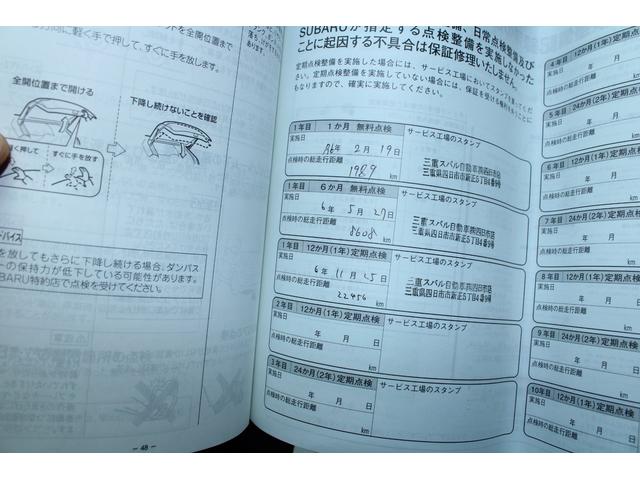 全開位置まで
方向に軽く手で押して、すぐに手を放します。
全開位置まで開ける
下降し続けないことを確認
く押して
すぐに手を放す
ドバイス
を放してもさらに下降し続ける場合、ダンパス
ーの保持力が低下している可能性があります。
BARU特約店で点検を受けてください。
− 48 −
SUBARUが指定する点検整備を実施しなかった
ことに起因する不具合は保証修理いたしません。
定期点検整備を実施した場合には、サービス工場においてスタンプを押して
さい。定期点検整備を実施していない場合には、保証を受けられ
もなりますので、確実に実施してください。
1年目 1か月 無料点検
サービス工場のスタンプ
実施日
2月19日
点検時の総走行距離
1989
km
三重スバル自動車㈱四日市店
三重県四日市市新正5丁目4番9号
1年目 6か月 無料点検
サービス工場のスタンプ
実施日
6年5月27日
点検時の総走行距離
8608
km
三重スバル自動車㈱四日市店
三重県四日市市新正5丁目4番9号
1年目 12か月(1年)定期点検
サービス工場のスタンプ
実施日
6年11月25日
点検時の総走行距離
22456
km
三重スバル自動車㈱四日市店
三重県四日市市新正5丁目4番9号
2年目 12か月(1年)定期点検
サービス工場のスタンプ
実施日
年 月 日
点検時の総走行距離
km
3年目 24か月(2年)定期点検
サービス工場のスタンプ
実施日
年 月 日
点検時の総走行距離
km
4年目 12か月(1年)定期
実施日
年 月
点検時の総走行距離
5年目 24か月(2年)定期
実施日
年 月
点検時の総走行距離
6年目 12か月(1年)定期
実施日
年 月
点検時の総走行距離
7年目 24か月(2年)定期点
実施日
年 月
点検時の総走行距離
8年目 12か月(1年)定期点
実施日
年 月
点検時の総走行距離
9年目 24か月(2年)定期点検
実施日
年 月 日
点検時の総走行距離
km
10年目 12か月(1年)定期点検
実施日
年 月 日
点検時の総走行距離
km